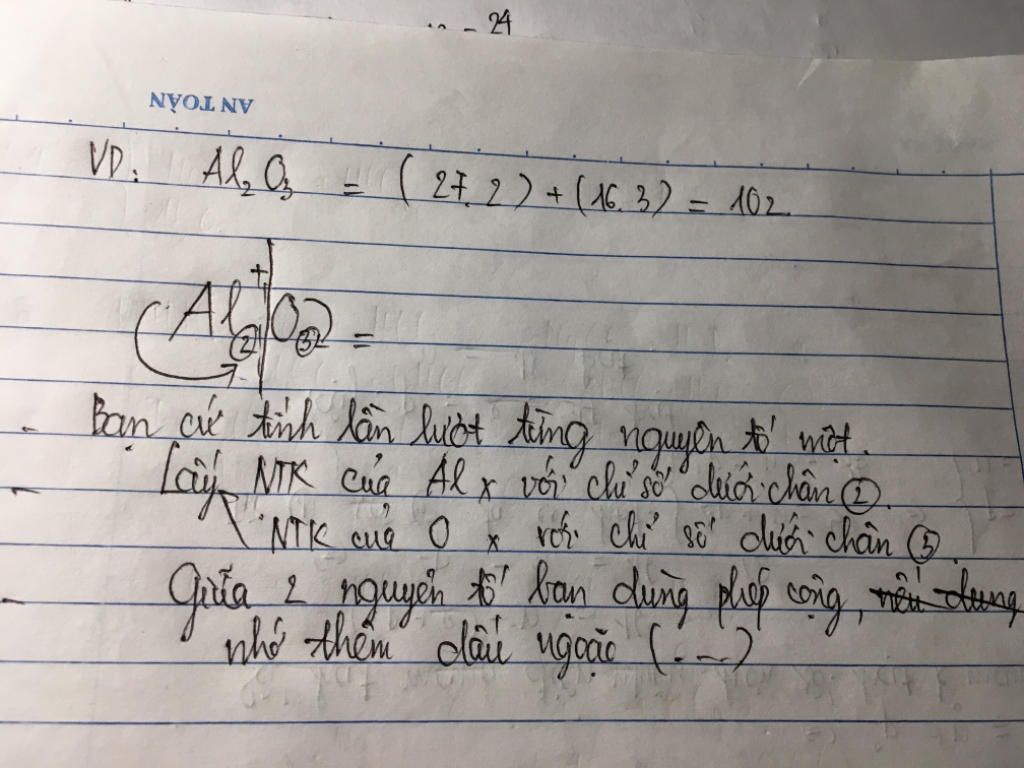 24
AN TOÀN
VD: Al2O3 = (27.2) + (16.3) = 102
+
Al2 O3 =
- Bạn cứ tính lần lượt từng nguyên tố một.
- Lấy NTK của Al x với chỉ số dưới chân 2.
NTK của O x với chỉ số dưới chân 3.
- Giữa 2 nguyên tố bạn dùng phép cộng, nếu dung
nhớ thêm dấu ngoặc (...)